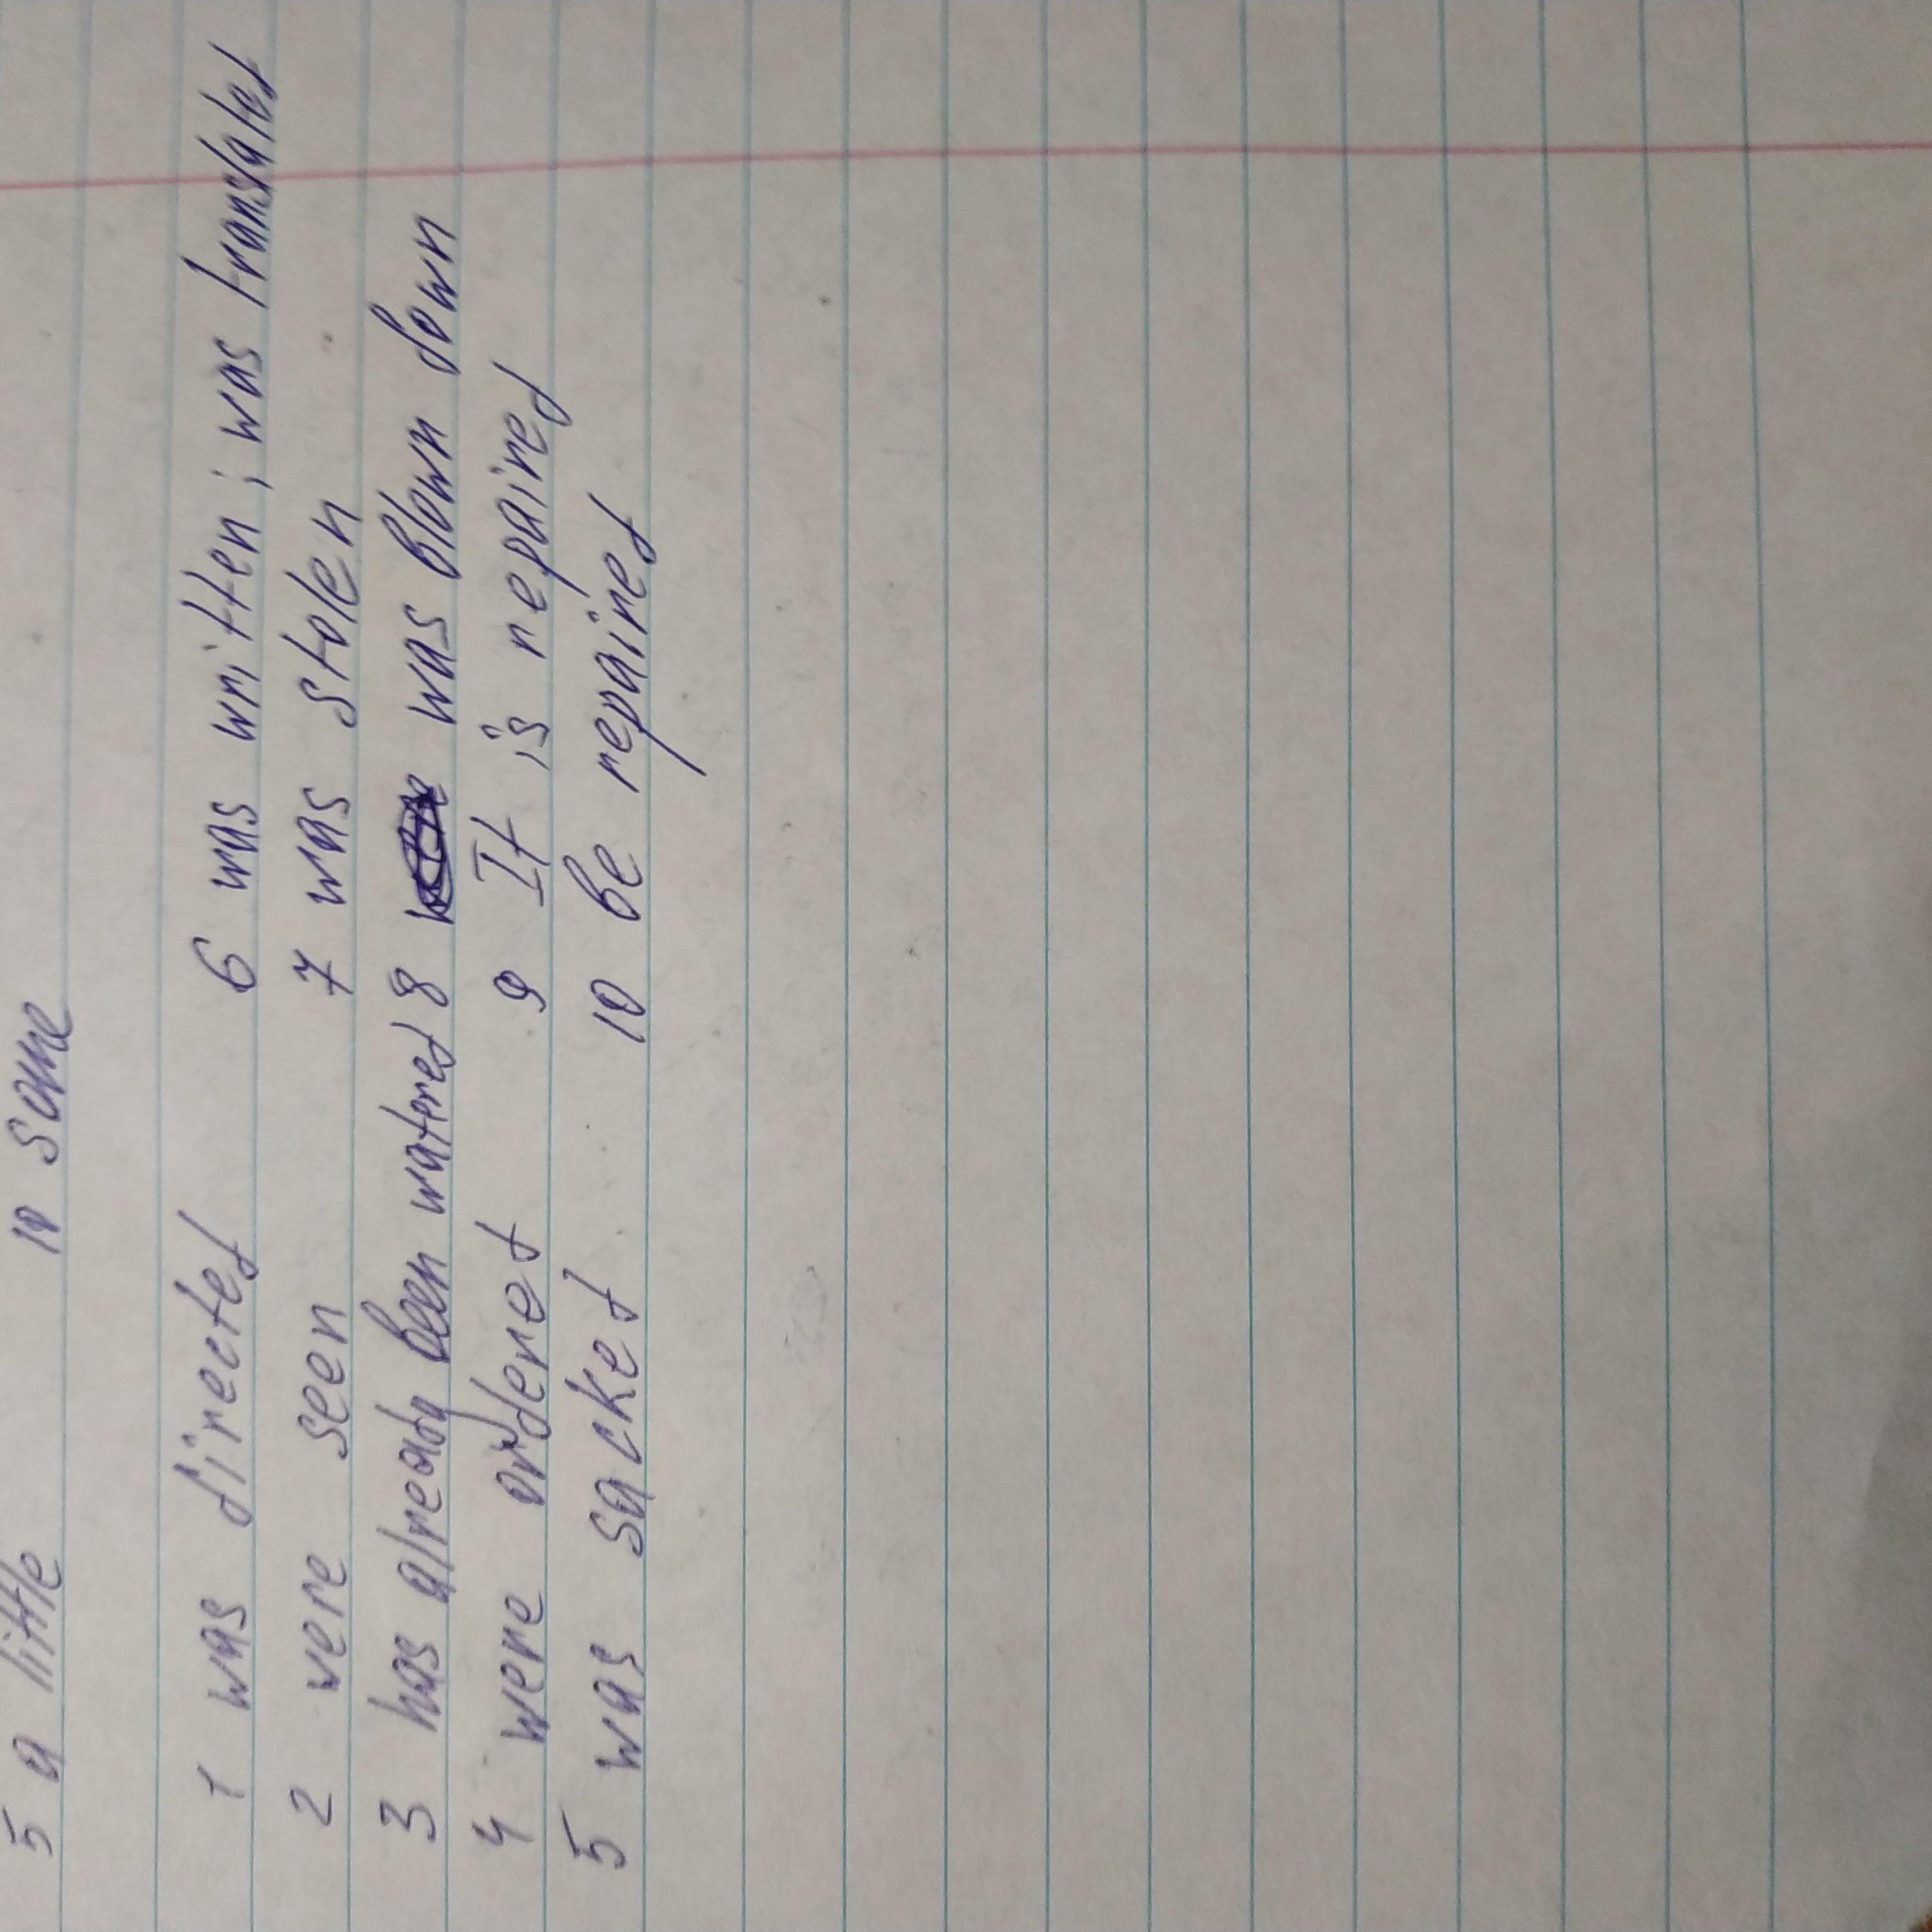 5 a little 10 some
1 was directed 6 was written; was translated
2 were seen 7 was stolen
3 has already been watered 8 was blown down
4 were ordered 9 It is repaired
5 was sacked 10 be repaired